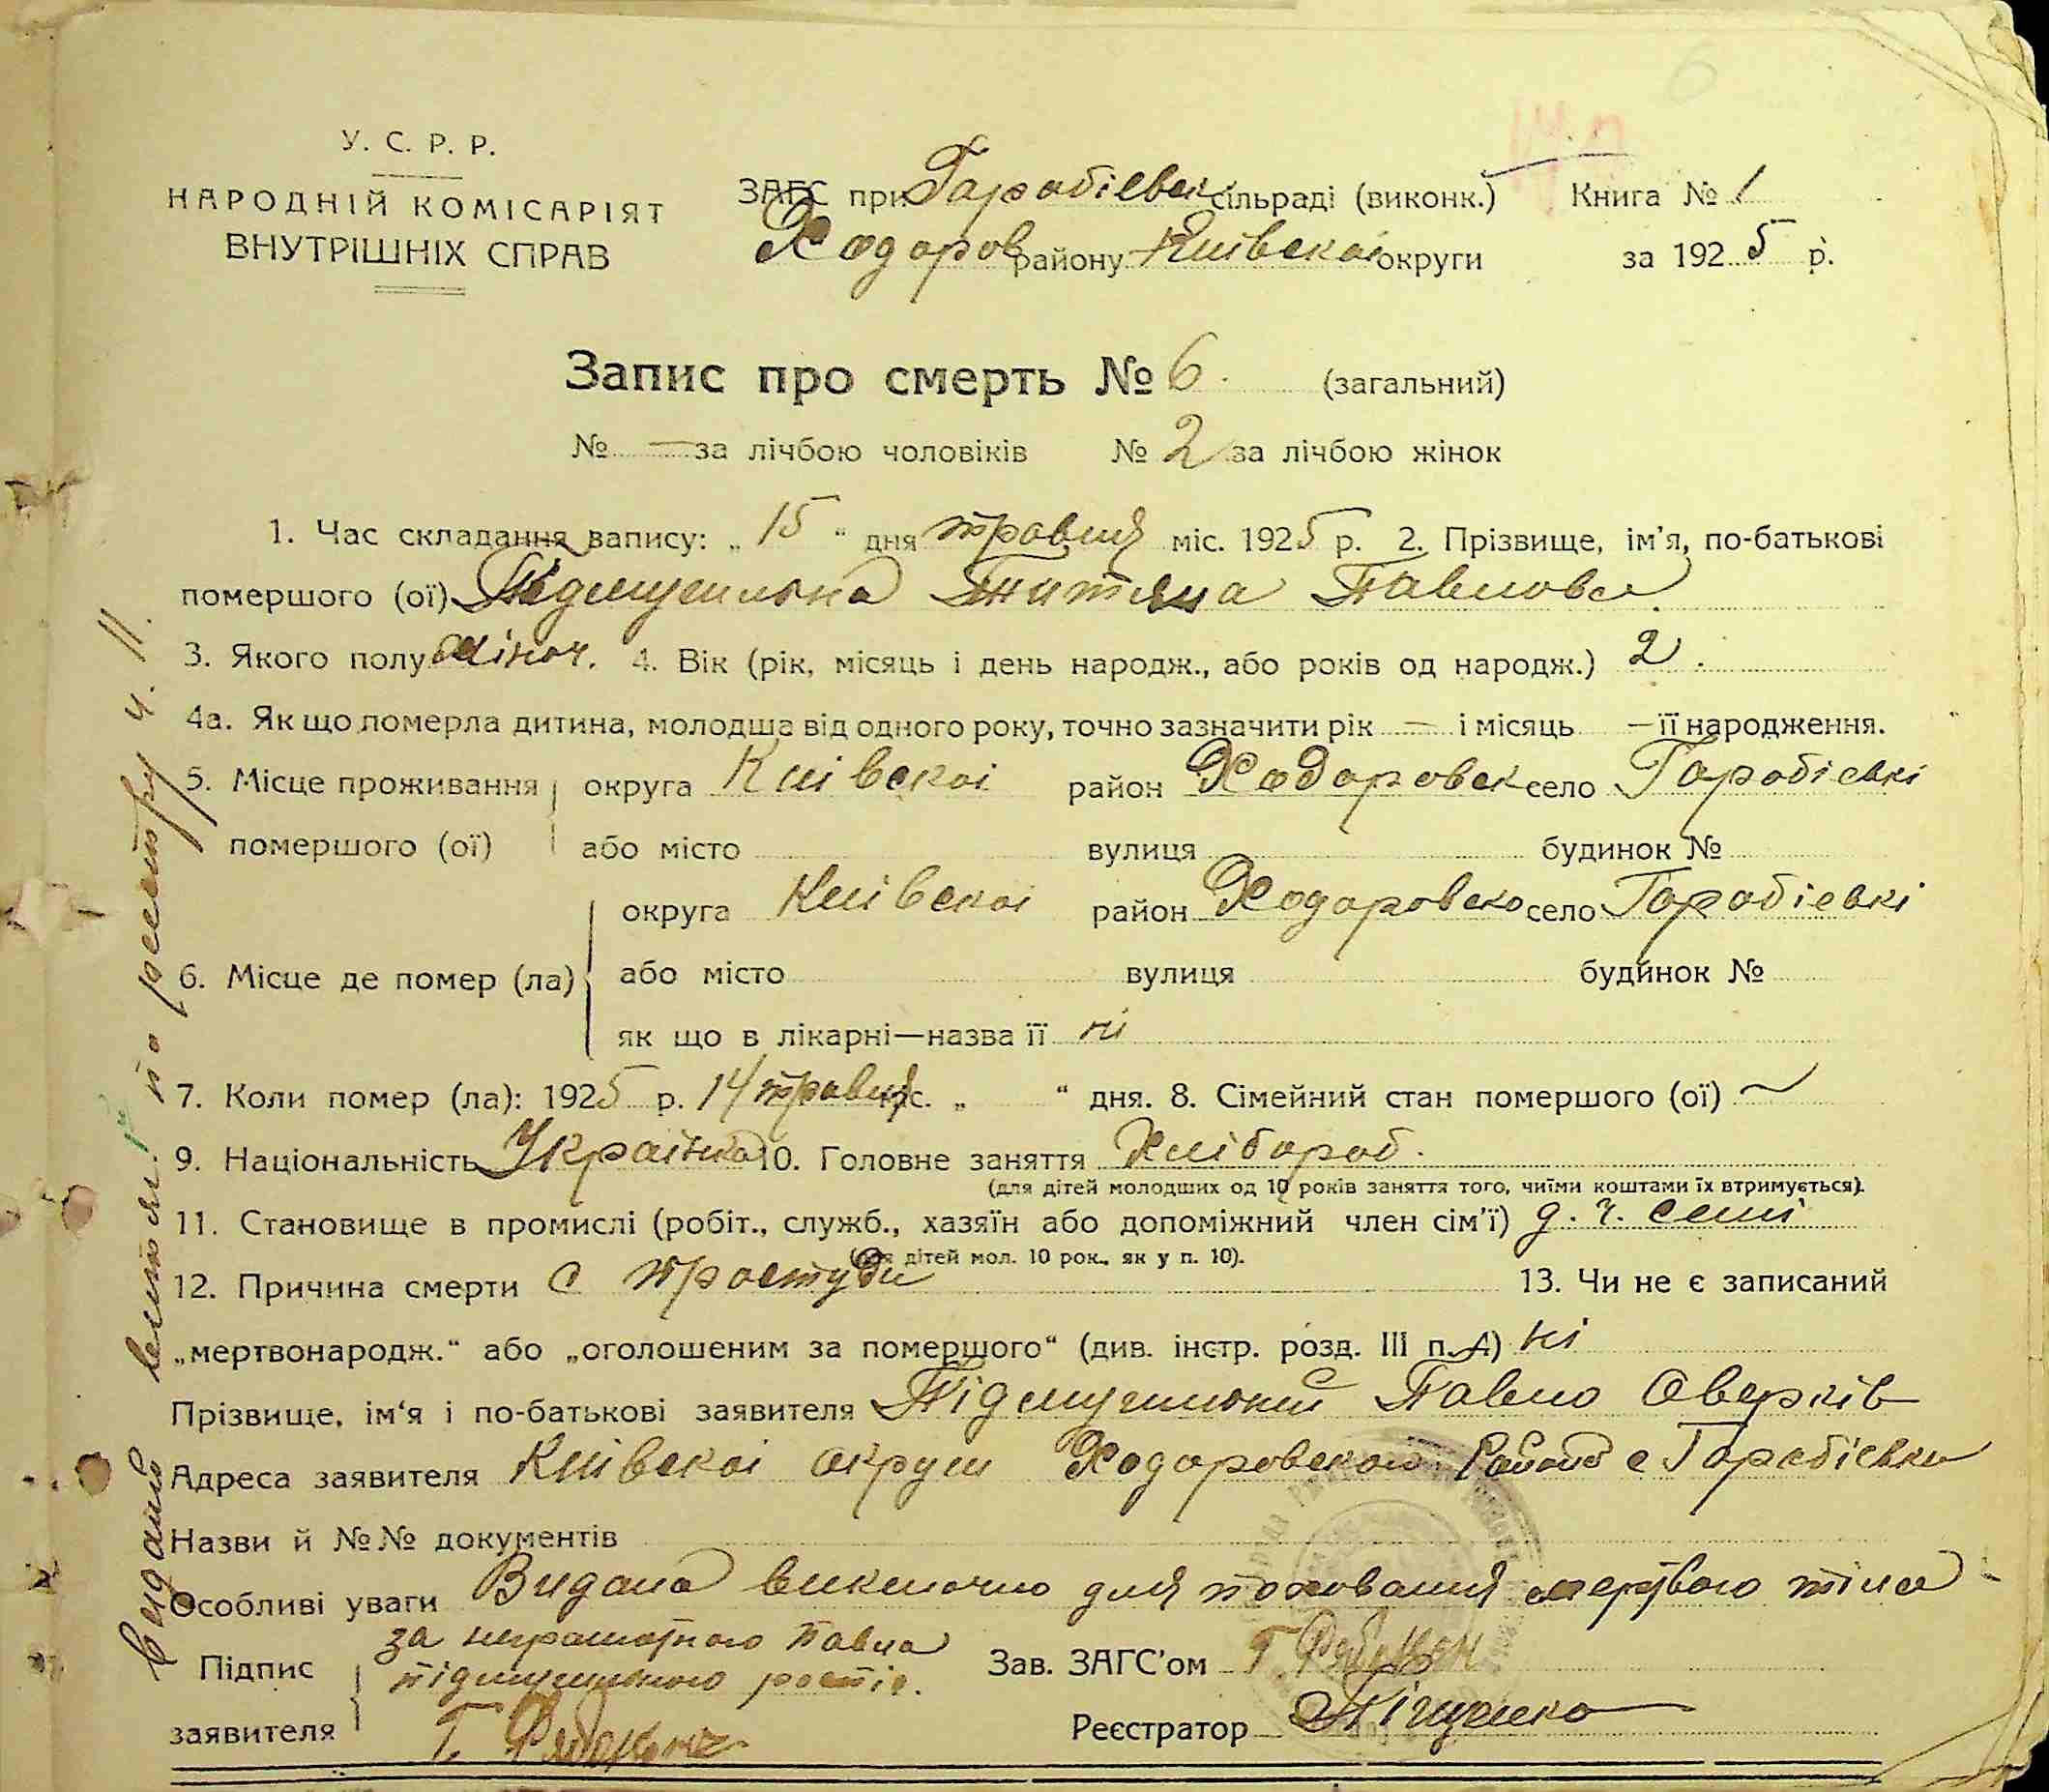 6
У. С. Р. Р.
НАРОДНІЙ КОМІСАРІЯТ
ВНУТРІШНІХ СПРАВ
ЗАГС при Гаробіевск сільраді (виконк.) Книга № 1
Ходоров району Київскої округи за 1925 р.
Запис про смерть № 6. (загальний)
№ — за лічбою чоловіків № 2 за лічбою жінок
1. Час складання запису: „ 15 “ дня травня міс. 1925 р. 2. Прізвище, ім'я, по-батькові
помершого (ої) Титяна Павлова
3. Якого полу жіноч. 4. Вік (рік, місяць і день народж., або років од народж.) 2.
4а. Як що померла дитина, молодша від одного року, точно зазначити рік — і місяць — її народження.
5. Місце проживання округа Київскоі район Ходоровск село Гаробіевкі
помершого (ої) або місто вулиця будинок №
округа Київскоі район Ходоровско село Гаробіевкі
6. Місце де помер (ла) або місто вулиця будинок №
як що в лікарні—назва її ні
7. Коли помер (ла): 1925 р. 14 травня міс. „ “ дня. 8. Сімейний стан помершого (ої) —
9. Національність Украінка 10. Головне заняття Хлібороб.
(для дітей молодших од 10 років заняття того, чиїми коштами їх втримується).
11. Становище в промислі (робіт., служб., хазяїн або допоміжний член сім'ї) д. ч. семі
(для дітей мол. 10 рок., як у п. 10).
12. Причина смерти с простуди 13. Чи не є записаний
„мертвонародж.“ або „оголошеним за помершого“ (див. інстр. розд. III п. 4) ні
Прізвище, ім'я і по-батькові заявителя Павло Аверків
Адреса заявителя Київскоі округи Ходоровского Района с Гаробіевки
Назви й №№ документів
Особливі уваги Видана виключно для поховання мертвого тіла
Підпис за неграмотного Павла
заявителя
Зав. ЗАГС'ом
Реєстратор
Видано витяг. по реестру ч. 11.